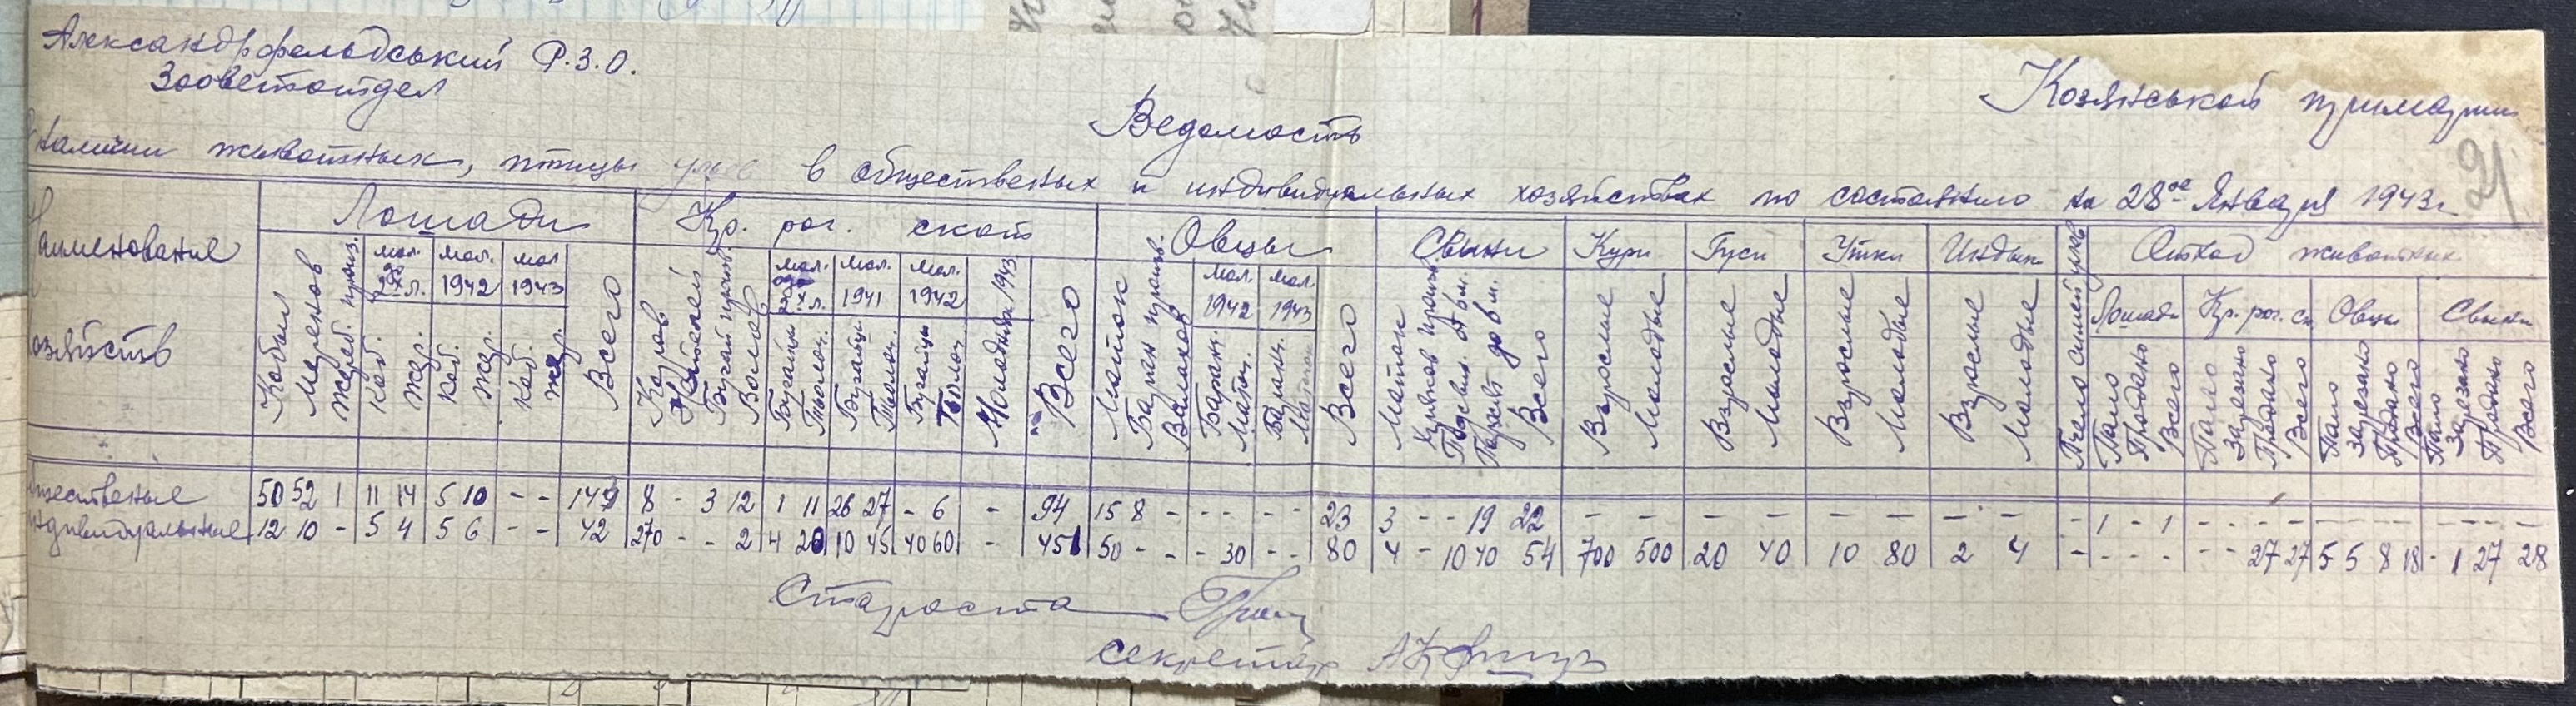 Александрфельдський Р.З.О.
Зооветотдел
Козянськой примарии
21
Ведомость
наличии животных, птицы ульев в общественых и индивидуальных хозяйствах по состоянию на 28ое Января 1943г
Наименование хозяйств
Лошади Кр. рог. скот Овцы Свыни Кури Гуси Утки Индыки Пчело семей ульев Отход животных
мол. 2х л. мол. 1942 мол 1943 мол. 2х л. мол. 1941 мол. 1942 Молодняк 1943 мол. 1942 мол. 1943 Лошади Кр. рог. ск Овцы Свыни
Кобыл Меренов Жереб. произ. Коб. Жер. Коб. Жер. Коб. Жер. Всего Коров Бугай произв. Волов Бугайци Телоч. Бугайци Телоч. Бугайци Телоч. Всего Маток Баран произв. Валахов Баранч. Маточ. Баранч. Маточек Всего Маток Хряков произв. Подсвин. от 6 м. Поросят до 6 м. Всего Взрослые Молодые Взрослые Молодые Взрослые Молодые Взрослые Молодые Пало Продано Всего Пало Зарезано Продано Всего Пало Зарезано Продано Всего Пало Зарезано Продано Всего
бщественые 50 52 1 11 14 5 10 - - 149 8 - 3 12 1 11 26 27 - 6 - 94 15 8 - - - - - 23 3 - - 19 22 - - - - - - - - - 1 - 1 - - - - - - - - - - - -
индивидуальные 12 10 - 5 4 5 6 - - 42 270 - - 2 4 20 10 45 40 60 - 451 50 - - - 30 - - 80 4 - 10 40 54 700 500 20 40 10 80 2 4 - - - - - - 27 27 5 5 8 18 - 1 27 28
Староста
секретар